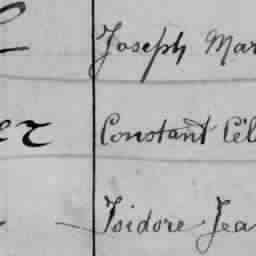 Joseph Mar
er Constant Cél
Isidore Jea